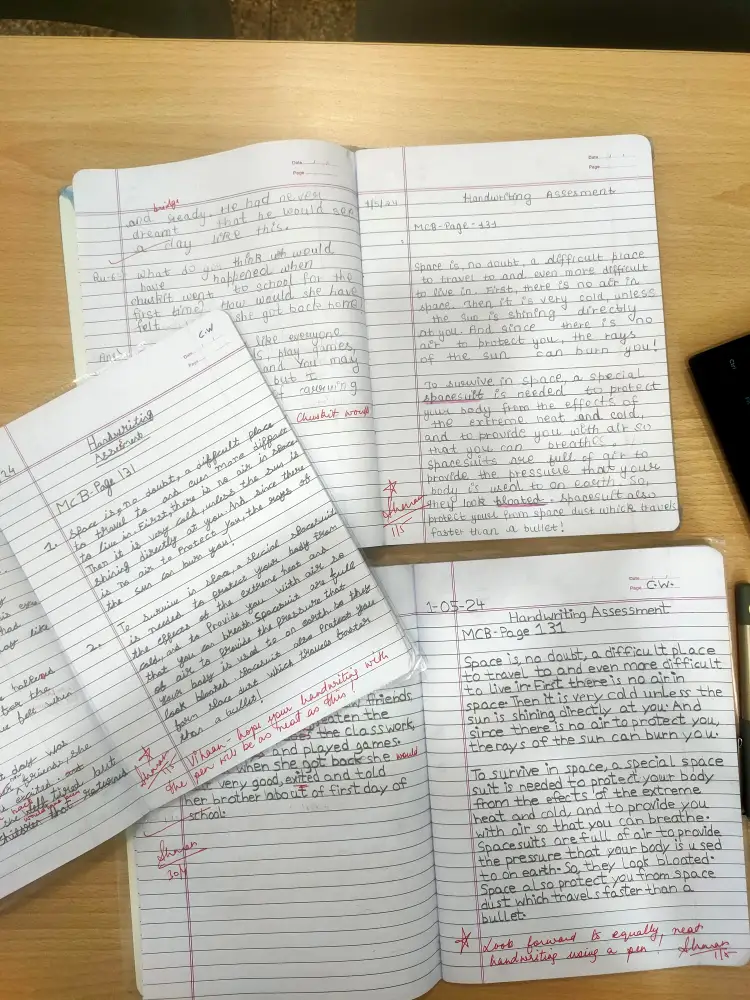 Date
Page
and ready. He had never
bridge
dreamt that he would see
a day like this.
What do you think would
have happened when
chuskit went to school for the
first time? How would she have
felt she got back home
Ans
like everyone
play games,
and You may
but I
Chuskit would
Date
Page
1/5/24
Handwriting Assesment
MCB-Page-131
Space is, no doubt, a difficult place
to travel to and even more difficult
to live in. First, there is no air in
space. Then it is very cold, unless
the sun is shining directly
at you. And since there is no
air to protect you, the rays
of the sun can burn you!
To survive in space a special
spacesuit is needed to protect
your body from the effects of
the extreme heat and cold,
and to provide you with air so
that you can breathe.
spacesuits are full of air to
provide the pressure that your
body is used to on earth. So,
they look bloated. spacesuit also
protect your from space dust which travels
faster than a bullet!
1/5
Date
Page
C.W
24
Handwriting
Assesment
MCB-Page 131
1. Space is, no doubt, a difficult place
to travel to and even more difficult
to live in. First, there is no air in space
Then it is very cold, unless the sun is
shining directly at you. And since there
is no air to Protect you, the rays of
the sun can burn you!
2. To survive in space, a special spacesuit
is needed to protect your body from
the effects of the extreme heat and
cold, and to Provide you with air so
that you can breath. Spacesuit are full
of air to provide the pressure that
your body is used to on earth so they
look bloated. spacesuit also Protect you
from space dust which travels faster
than a bullet!
1/5
Vihaan- hope your handwriting with
the pen will be as neat as this!
day was
friend, she
friends
eaten the
the classwork,
and played games.
when she got back she would
very good, exited and told
her brother about of first day of
school.
30/4
Date
Page
C.W.
1-05-24
Handwriting Assessment
MCB-Page 131
Space is, no doubt, a difficult place
to travel to and even more difficult
to live in. First there is no air in
space. Then it is very cold unless the
sun is shining directly at you. And
since there is no air to protect you,
the rays of the sun can burn you.
To survive in space, a special space
suit is needed to protect your body
from the effects of the extreme
heat and cold, and to provide you
with air so that you can breathe.
Spacesuits are full of air to provide
the pressure that your body is used
to on earth. So, they look bloated.
Space also protect you from space
dust which travels faster than a
bullet.
Look forward to equally, neat
handwriting using a pen!
1/5